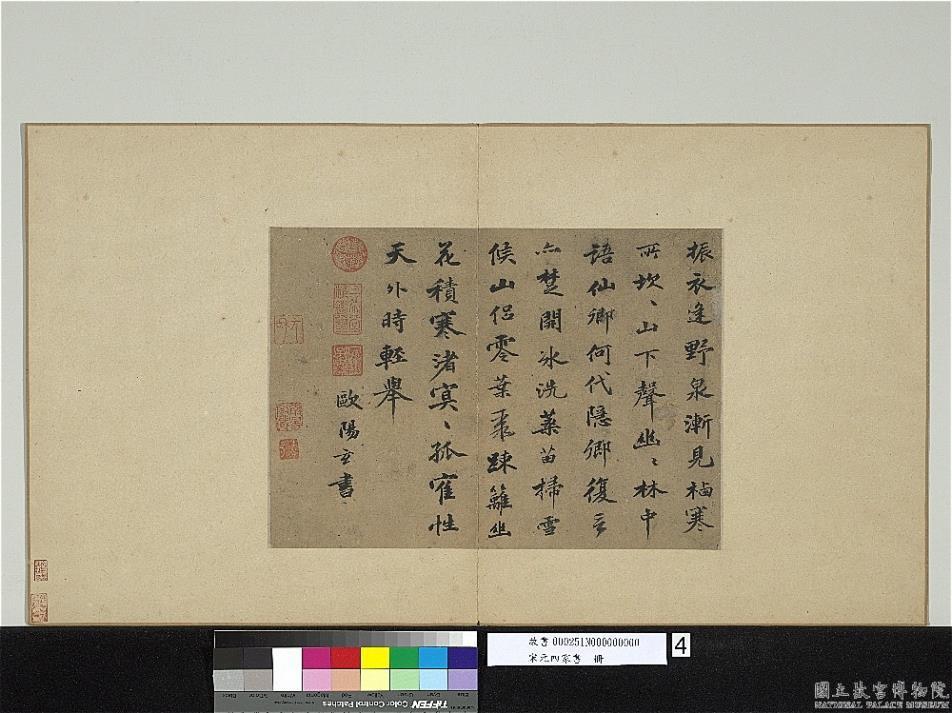 振衣逢野泉漸見植寒
所坎〻山下聲幽〻林中
語仙鄉何代隱鄉復言
亦楚開冰洗藥苗掃雪
候山侶零葉疎籬幽
花積寒渚冥〻孤寉性
天外時輕舉
歐陽玄書
故書 000251N000000000
宋元四家書 冊
4
TIFFEN Color Control Patches
Blue Cyan Green Yellow Red Magenta White Black
國立故宮博物院
NATIONAL PALACE MUSEUM